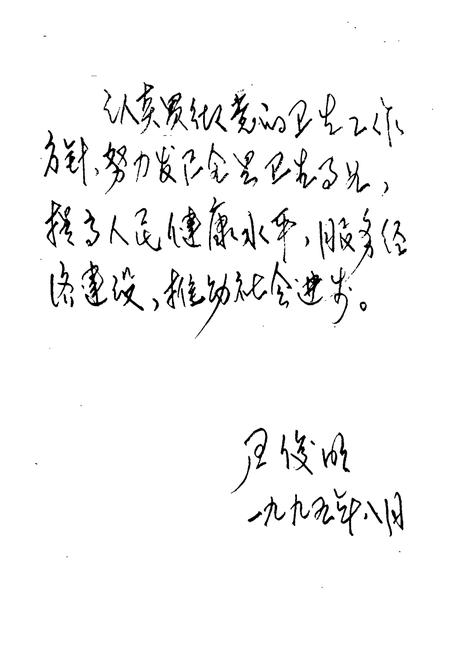 认真贯彻党的卫生工作
方针、努力发展全县卫生事业，
提高人民健康水平，服务经
济建设，推动社会进步。
王俊明
一九九五年八月